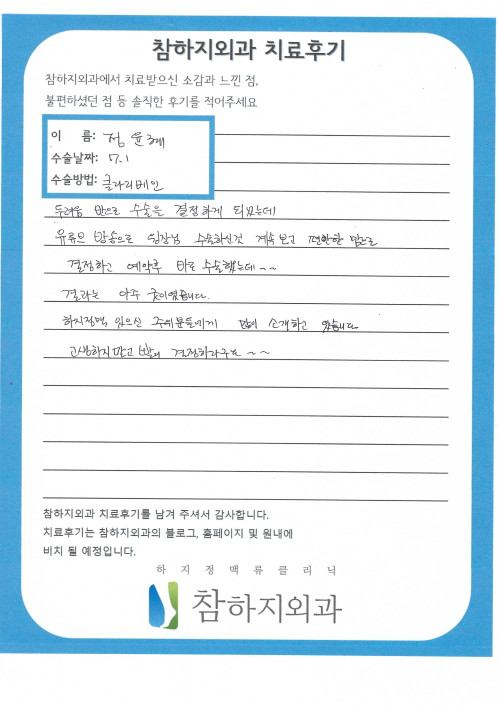 참하지외과 치료후기
참하지외과에서 치료받으신 소감과 느낀 점,
불편하셨던 점 등 솔직한 후기를 적어주세요
이 름: 정윤혜
수술날짜: 7.1
수술방법: 클라리베인
두려움 반으로 수술을 결정하게 되었는데
유튜브 방송으로 원장님 수술하신것 계속보고 편안한 맘으로
결정하고 예약후 바로 수술했는데~~
결과는 아주 굿이였습니다.
하지정맥 있으신 주위분들에게 많이 소개하고 있습니다
고생하지말고 빨리 결정하라구요~~
참하지외과 치료후기를 남겨 주셔서 감사합니다.
치료후기는 참하지외과의 블로그, 홈페이지 및 원내에
비치 될 예정입니다.
하지정맥류클리닉
참하지외과